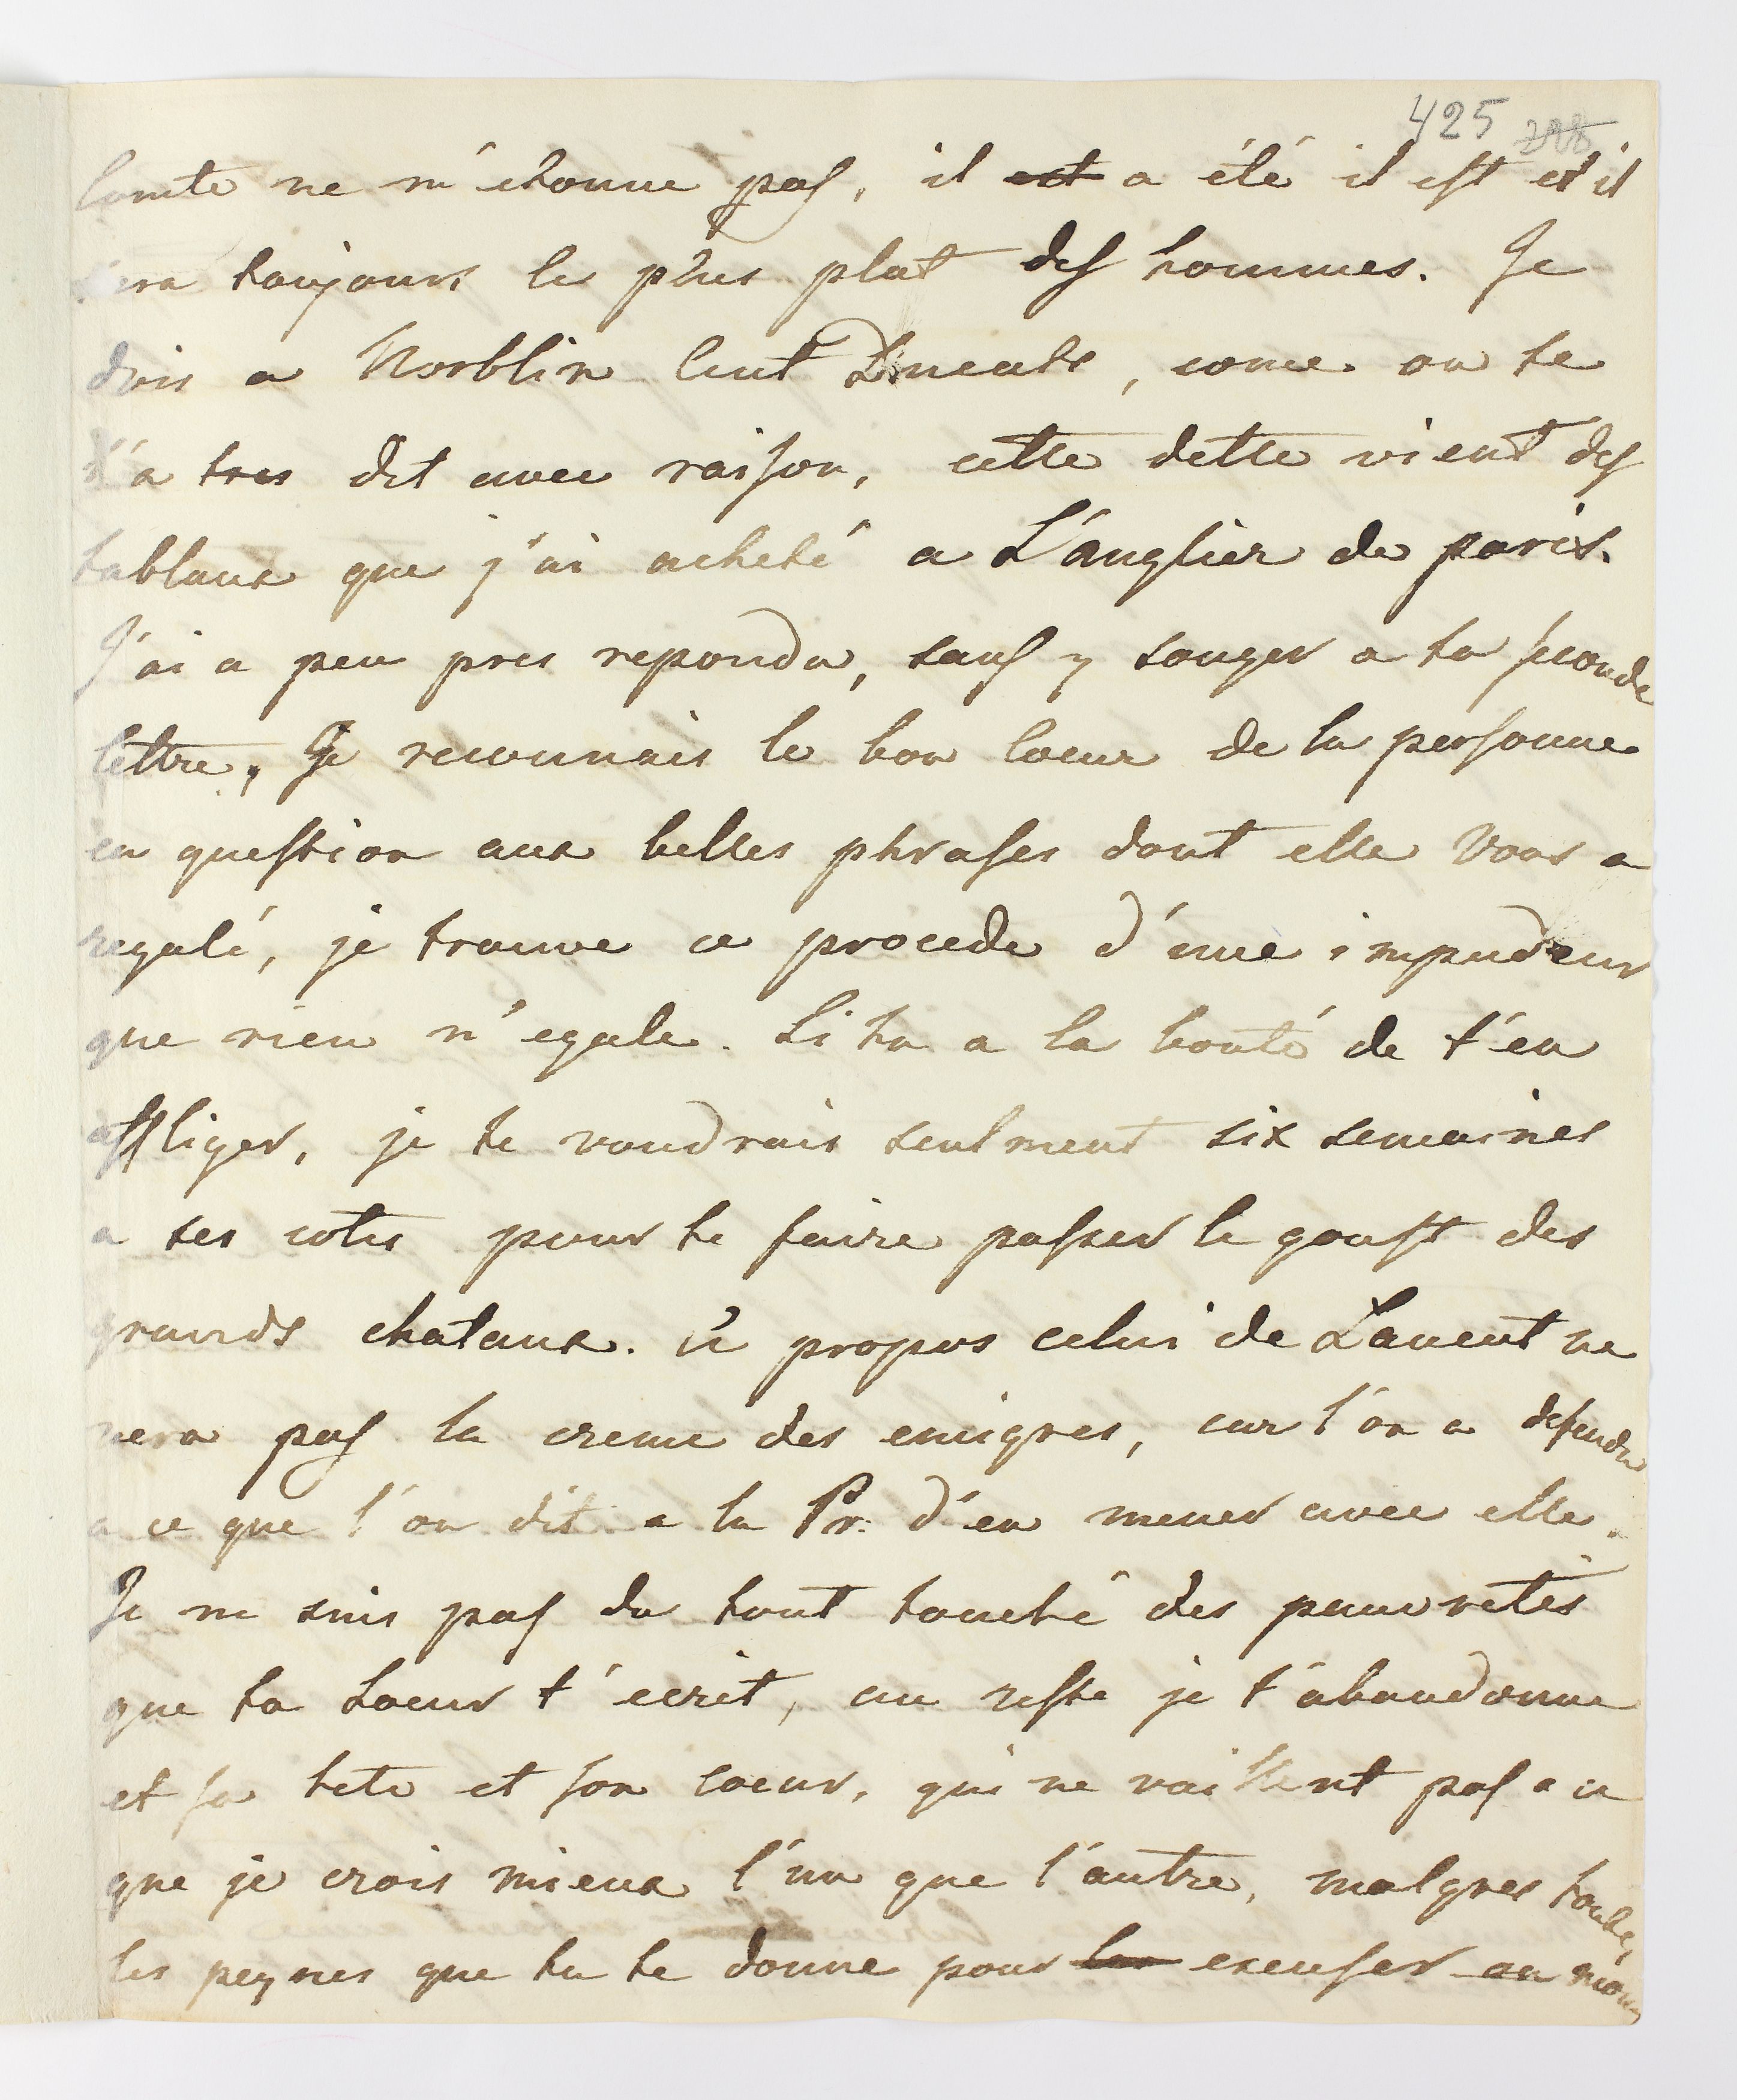 425 298
Comte ne m'etonne pas, il est a été il est et il
sera toujours le plus plat des hommes. Je
dois a Norblin Cent Ducats, come on te
l'a tres dit avec raison, cette dette vient des
tableaux que j'ai acheté a L'anglier de paris.
J'ai a peu pres repondu, sans y songer a ta seconde
lettre, Je reconnais le bon Coeur de la personne
en question aux belles phrases dont elle Vous a
regalé, je trouve ce procede d'une impudeur
que rien n'egale. Si tu a la bonté de t'en
affliger, je te voudrais seulment six semaines
a ses cotes pour te faire passer le goust des
grands chataux. a propos celui de Lanent ne
vera pas la creme des emigres, car l'on a defendu
a ce que l'on dit a la Pr: d'en mener avec elle.
Je ne suis pas du tout touché des pauvretes
que ta Soeur t'ecrit, au reste je t'abandonne
et sa tete et son coeur, qui ne vaillent pas a ce
que je crois mieux l'un que l'autre, malgres toutes
les peynes que tu te donne pour les excuser au moins